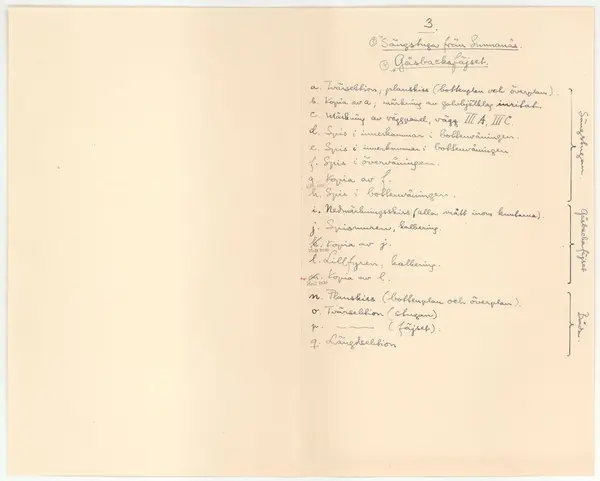 3.
① Sängstuga från Sunnanäs.
② Gåsbacksfäjset.
a. Tvärsektion, planskiss (bottenplan och överplan).
b. Kopia av a; märkning av golvbjälklag inritat.
c. Märkning av väggpanel, vägg III A, III C.
d. Spis i innerkammar i bottenvåningen.
e. Spis i innerkammar i bottenvåningen
f. Spis i övervåningen.
g. Kopia av f.
h. Spis i bottenvåningen.
i. Nedmärkningsskiss (alla mått inom knutarna).
j. Spismuren, kalkering.
k. Kopia av j.
l. Lillfyren, kalkering.
m. Kopia av l.
n. Planskiss (bottenplan och överplan).
o. Tvärsektion (stugan)
p. ——— (fäjset).
q. Längdsektion
Sängstugan.
Gåsbacksfäjset
Båda.